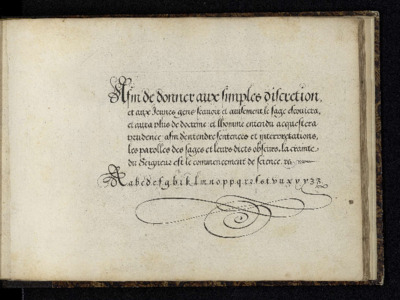 Afin de donner aux simples discretion,
et aux Jeunes gens scavoir et avisement le sage escoutera,
et aura plus de doctrine et lhomme entendu acquestera
prudence afin dentendre sentences et interpretations,
les parolles des sages et leurs dicts obscurs, la crainte
du Seigneur est le commencement de science.
A a b c d e f g h i k l m n o p p q r s s t v u x y y z z